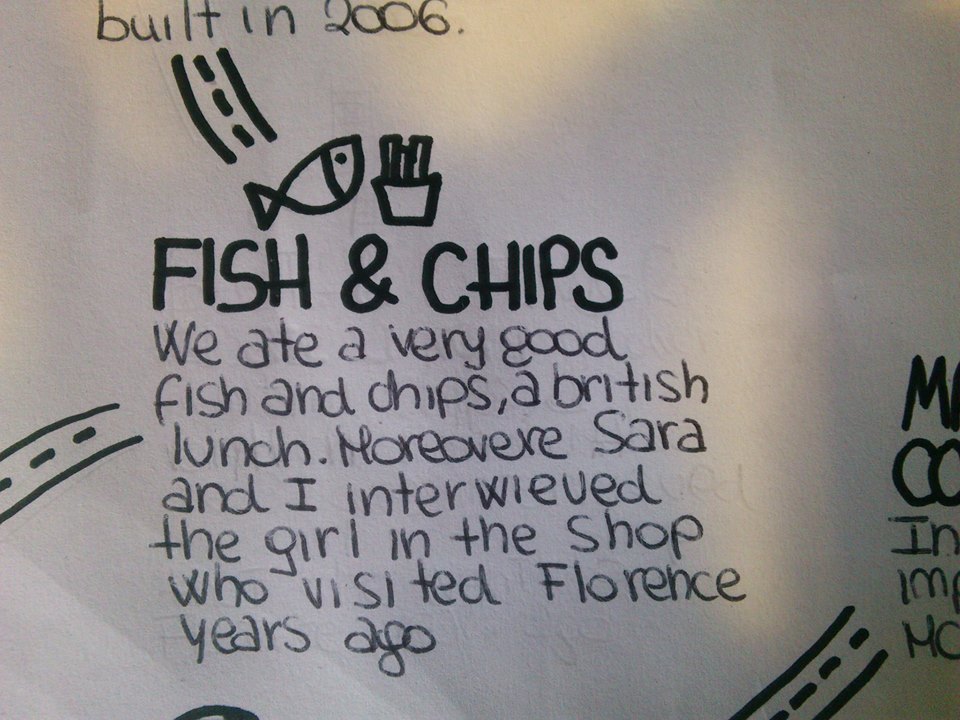 built in 2006.
FISH & CHIPS
We ate a very good
fish and chips, a british
lunch. Moreovere Sara
and I interwieved
the girl in the shop
who visited Florence
years ago
MA
CO
In
imp
MO